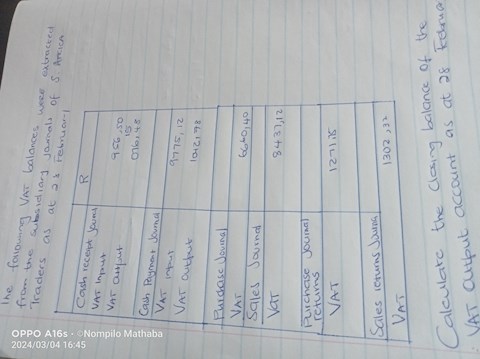 The following VAT balances were extracted
from the subsidiary journals of S Africa
Traders as at 28 February
R
Cash receipt Journal
VAT Input 956,50
VAT output
Cash Payment Journal
VAT input 9775,12
VAT output 1012,98
Purchase Journal
VAT 6640,40
Sales Journal
VAT 8437,12
Purchase Journal
returns
VAT
Sales returns Journal
VAT 1302,32
Calculate the closing balance of the
VAT output account as at 28 February
OPPO A16s · ©Nompilo Mathaba
2024/03/04 16:45